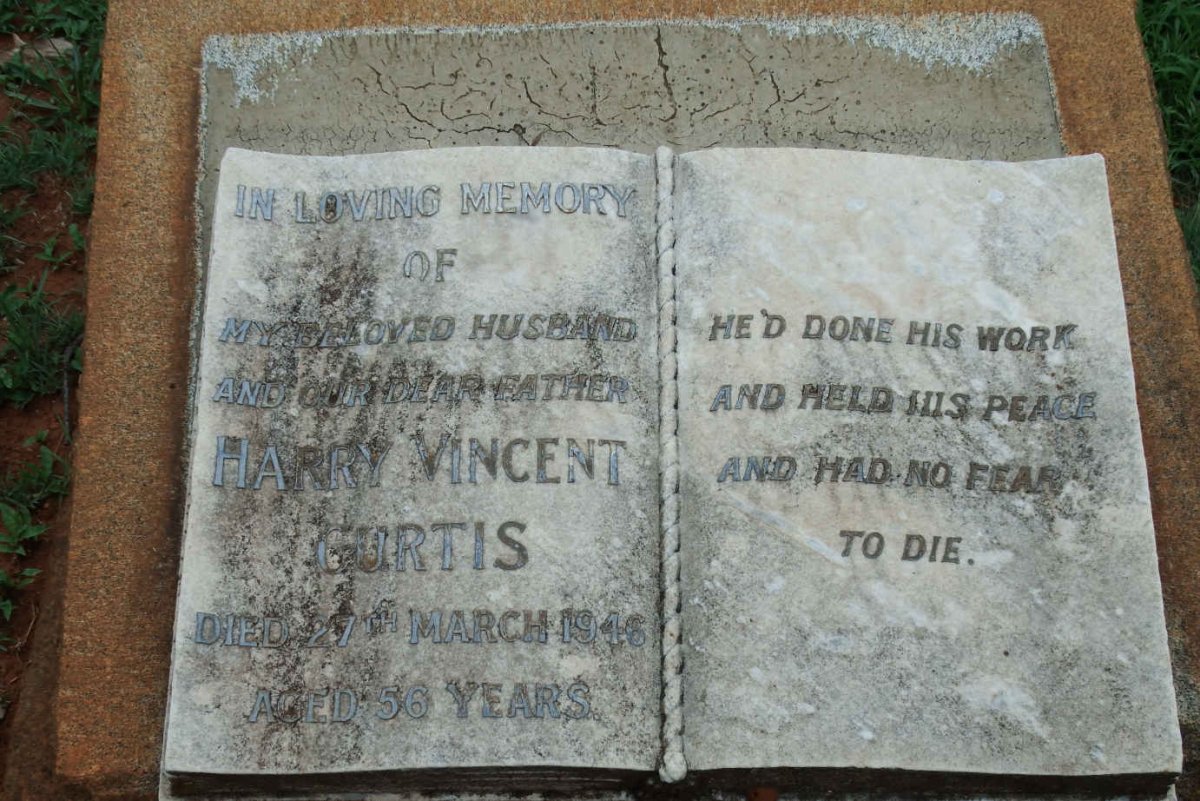 IN LOVING MEMORY
OF
MY BELOVED HUSBAND
AND OUR DEAR FATHER
HARRY VINCENT
CURTIS
DIED 27TH MARCH 1946
AGED 56 YEARS
HE'D DONE HIS WORK
AND HELD HIS PEACE
AND HAD NO FEAR
TO DIE.